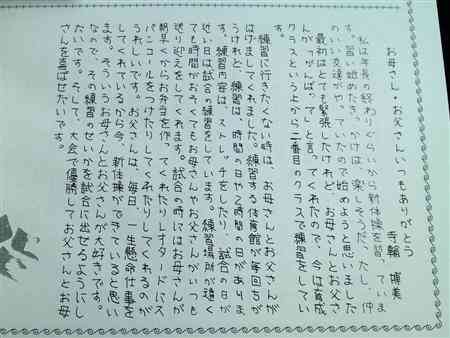 お母さん・お父さんいつもありがとう
寺輪　博美
私は年長の終わりぐらいから新体操を習っていま
す。習い始めたきっかけは、楽しそうだったし、仲
のいい友達がやっていたので始めようと思いました。
最初はとても緊張したけれど、お母さんとお父さ
んが「がんばって」と言ってくれたので、今は育成
クラスという上から二番目のクラスで練習をしてい
ます。
練習に行きたくない時は、お母さんとお父さんが
はげましてくれました。練習する体育館が毎回ちが
うけれど、練習は、時間の日や2時間の日がありま
す。練習内容は、ストレッチをしたり、試合の日が
近い日は試合の練習をしています。練習場所が遠く
ても時間がおそくてもお母さんやお父さんがいつも
送り迎えをしてくれます。試合の時にはお母さんが
朝早くからお弁当を作ってくれたりレオタードにス
パンコールをつけたりしてくれたりしてくれるのが
うれしいです。お父さんは、毎日、一生懸命仕事を
してくれているから今、新体操ができていると思い
ます。そういうお母さんとお父さんが大好きです。
なので、その練習のせいかを試合に出せるようにし
たいです。そして、大会で優勝してお父さんとお母
さんを喜ばせたいです。